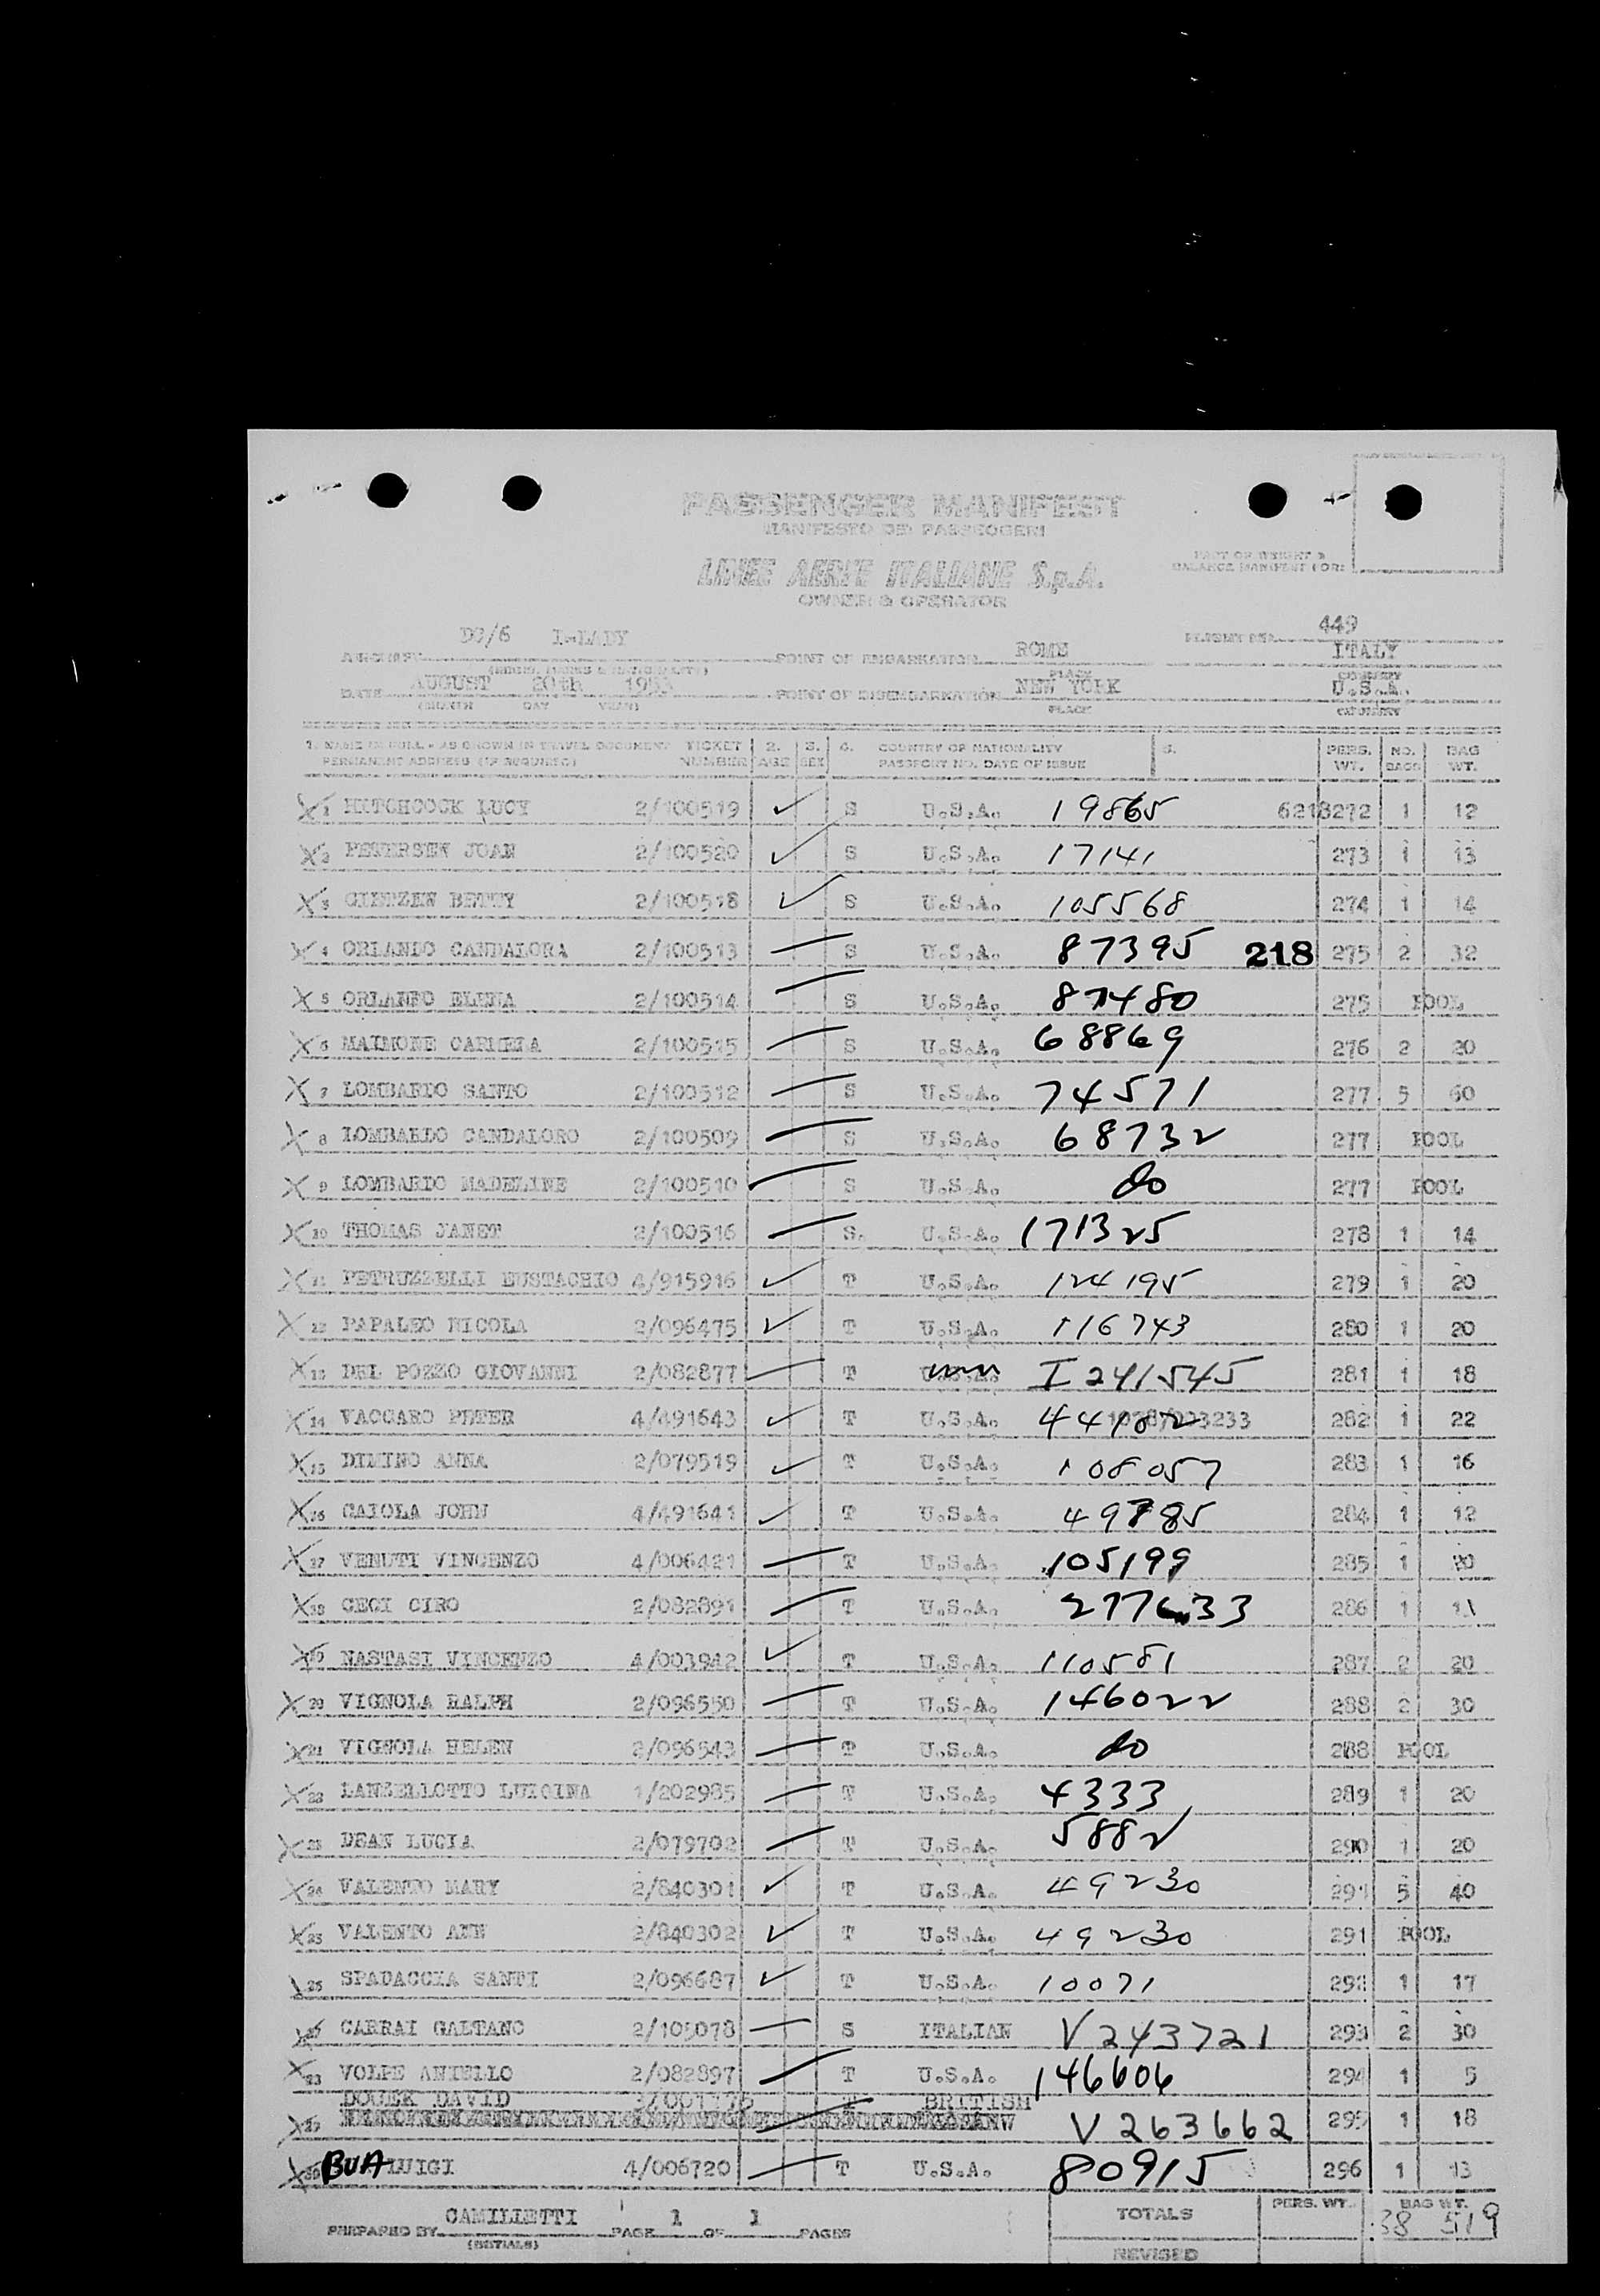 PASSENGER MANIFEST
MANIFESTO DEI PASSEGGERI
LINEE AEREE ITALIANE S.p.A.
OWNER & OPERATOR
PART OF WEIGHT &
BALANCE MANIFEST FOR:
AIRCRAFT DC/6 I-LADY POINT OF EMBARKATION ROME FLIGHT 449 ITALY
PLACE COUNTRY
DATE AUGUST 20th POINT OF DISEMBARKATION NEW YORK U.S.A.
(MONTH DAY YEAR) PLACE COUNTRY
1. NAME IN FULL - AS SHOWN IN TRAVEL DOCUMENT TICKET 2. 3. 4. COUNTRY OF NATIONALITY 5. PERS. NO. BAG
PERMANENT ADDRESS (IF REQUIRED) NUMBER AGE SEX PASSPORT NO. DATE OF ISSUE WT. BAGS WT.
1 HITCHCOCK LUCY 2/100519 S U.S.A. 19865 6218272 1 12
2 PETERSEN JOAN 2/100520 S U.S.A. 17141 273 1 13
3 GINTZEN BETTY 2/100518 S U.S.A. 105568 274 1 14
4 ORLANDO CANDALORA 2/100513 S U.S.A. 87395 218 275 2 32
5 ORLANDO ELENA 2/100514 S U.S.A. 87480 275 POOL
6 MAIMONE CARMELA 2/100515 S U.S.A. 68869 276 2 20
7 LOMBARDO SANTO 2/100512 S U.S.A. 74571 277 5 60
8 LOMBARDO CANDALORO 2/100509 S U.S.A. 68732 277 POOL
9 LOMBARDO MADELINE 2/100510 S U.S.A. do 277 POOL
10 THOMAS JANET 2/100516 S. U.S.A. 171325 278 1 14
11 PETRUZZELLI EUSTACHIO 4/915916 T U.S.A. 124195 279 1 20
12 PAPALEO NICOLA 2/096475 T U.S.A. 116743 280 1 20
13 DEL POZZO GIOVANNI 2/082877 T I 241545 281 1 18
14 VACCARO PETER 4/491643 T U.S.A. 282 1 22
15 DIMINO ANNA 2/079519 T U.S.A. 108057 283 1 16
16 CAIOLA JOHN 4/491641 T U.S.A. 49785 284 1 12
17 VENUTI VINCENZO 4/006421 T U.S.A. 105199 285 1 20
18 CECI CIRO 2/082891 T U.S.A. 277633 286 1
19 NASTASI VINCENZO 4/003942 T U.S.A. 110581 287 2 20
20 VIGNOLA RALPH 2/096550 T U.S.A. 146022 288 2 30
21 VIGNOLA HELEN 2/096543 T U.S.A. do 288 POOL
22 LANZELLOTTO LUIGINA 1/202985 T U.S.A. 4333 289 1 20
23 DEAN LUCIA 2/079702 T U.S.A. 5882 290 1 20
24 VALENTO MARY 2/840301 T U.S.A. 49230 291 5 40
25 VALENTO ANN 2/840302 T U.S.A. 49230 291 POOL
26 SPADACCIA SANTI 2/096687 T U.S.A. 10071 292 1 17
27 CARRAI GAETANO 2/105078 S ITALIAN V 243721 293 2 30
28 VOLPE ANIELLO 2/082897 T U.S.A. 146606 294 1 5
DAVID T BRITISH
29 V 263662 295 1 18
30 BUA LUIGI 4/006720 T U.S.A. 80915 296 1 13
PREPARED BY CAMILLETTI PAGE 1 OF 1 PAGES TOTALS PERS. WT. BAG WT.
(INITIALS) 38 519
REVISED